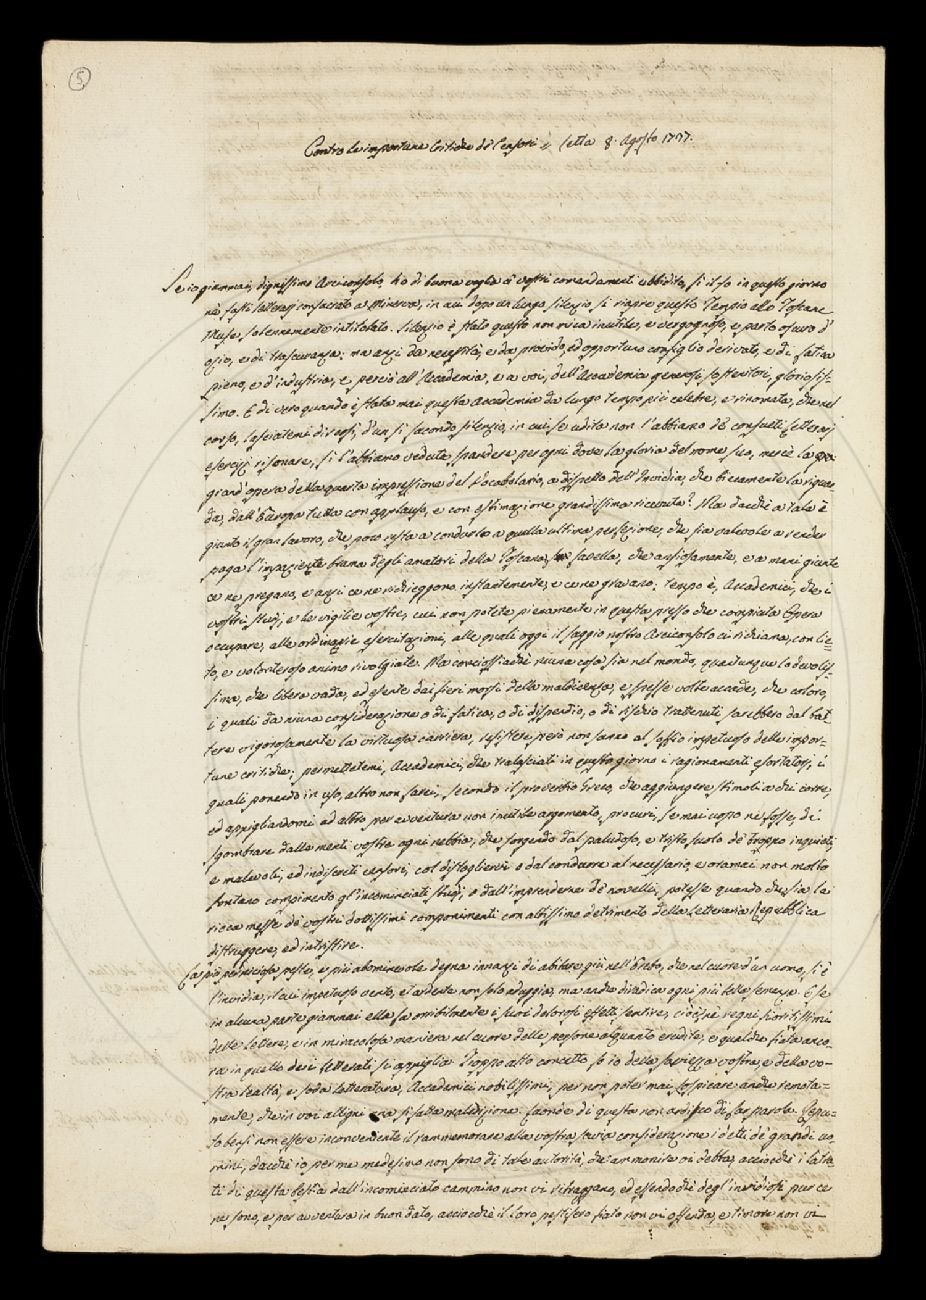 5
Contro le importune Critiche de' Censori Letta 8. Agosto 1737.
Se io giammai, dignissimo Arciconsolo, ho di buona voglia a' vostri comandamenti ubbidito, si il fo in questo giorno
ne' fasti letterarj consacrato a Minerva, in cui dopo un lungo silenzio si riapre questo Tempio alle Toscane
Muse solennemente intitolato. Silenzio è stato questo non mica inutile, e vergognoso, e parto oscuro d'
ozio, e di trascuranza: ma anzi da necessità, e da provido, ed opportuno consiglio derivato, e di fatica
pieno, e d'industria, e perciò all'Accademia, e a voi, dell'Accademia generosi sostenitori, gloriosis-
simo. E di vero quando è stata mai questa Accademia da lungo tempo più celebre, e rinomata, che nel
corso, lasciatemi dir così, d'un sì facondo silenzio, in cui se udita non l'abbiamo de' consueti letterarj
esercizj risonare, sì l'abbiamo veduta spandere per ogni dove la gloria del nome suo, mercè la
grand'opera della quarta impressione del Vocabolario, a dispetto dell'Invidia, che biecamente la riguar-
da, dall'Europa tutta con applauso, e con estimazione grandissima ricevuta? Ma dacchè a tale è
giunto il gran lavoro, che poco resta a condurlo a quella ultima perfezione, che sia valevole a render
paga l'impaziente brama degli amatori della Toscana favella, che ansiosamente, e a mani giunte
ce ne pregano, e anzi ce ne richieggono instantemente, e ce ne gravano; tempo è, Accademici, che i
vostri studj, e le vigilie vostre, cui non potete pienamente in questa presso che compiuta Opera
occupare, alle ordinarie esercitazioni, alle quali oggi il saggio nostro Arciconsolo ci richiama, con lie-
to, e volonteroso animo rivolgiate. Ma conciossiachè niuna cosa sia nel mondo, quantunque lodevolis-
sima, che libera vada, ed esente dai fieri morsi della maldicenza, e spesse volte accade, che coloro,
i quali da niuna considerazione o di fatica, o di dispendio, o di rischio trattenuti sarebbero dal bat-
tere vigorosamente la virtuosa carriera, resistere però non sanno al soffio impetuoso delle impor-
tune critiche; permettetemi, Accademici, che tralasciati in questo giorno i ragionamenti esortatorj, i
quali ponendo in uso, altro non farei, secondo il proverbio Greco, che aggiungere stimoli a chi corre,
ed appigliandomi ad altro per avventura non inutile argomento, procuri, se mai uopo ne fosse, di
sgombrare dalle menti vostre ogni nebbia, che sorgendo dal paludoso, e tristo suolo de' troppo inquieti,
e malevoli, ed indiscreti censori, col distogliervi o dal condurre al necessario, e oramai non molto
lontano compimento gl'incominciati studj, o dall'imprenderne de' novelli, potesse quando che sia la
ricca messe de' vostri dottissimi componimenti con altissimo detrimento della Letteraria Repubblica
distruggere, ed intristire.
La più perniciosa peste, e più abominevole degna innanzi di abitare giù nell'Erebo, che nel cuore d'un uomo, si è
l'invidia, il cui impetuoso vento, e l'ardente non solo aduggia, ma anche diradica ogni più bella semenza. E se
in alcuna parte giammai ella fa orribilmente i suoi dolorosi effetti sentire, ciò è ne' regni fioritissimi
delle lettere, e in miracolosa maniera nel cuore delle persone alquanto erudite, e qualche fiata anco-
ra in quello dei letterati si appiglia. Troppo alto concetto fo io della saviezza vostra, e della vo-
stra lealtà, e soda letteratura, Accademici nobilissimi, per non poter mai sospicare anche remota-
mente, che in voi alligni una sì fatta maledizione: laonde di questa non ardisco di far parola. Repu-
to bensì non essere inconveniente il rammemorare alla vostra savia considerazione i detti de' grandi uo-
mini, dacchè io per me medesimo non sono di tale autorità, che ammonire vi debba, acciocchè i latra-
ti di questa bestia dall'incominciato cammino non vi ritraggano, ed essendochè degl'invidiosi pur ce
ne sono, e per avventura in buon dato, acciocchè il loro pestifero fiato non vi offenda, e timore non vi